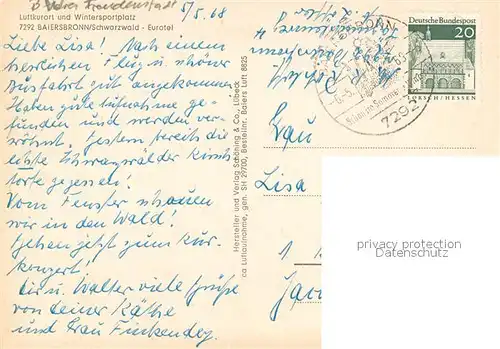 b. Hores Freudenstadt
5/5.68
Luftkurort und Wintersportplatz
7292 BAIERSBRONN/Schwarzwald - Eurotel
Liebe Lisa! Nach einem
herrlichen Flug u. schöner
Busfahrt gut angekommen.
Haben gute Aufnahme ge-
funden und werden ver-
wöhnt. Gestern bereits die
echte Schwarzwälder Kirsch
torte gegessen!
Vom Fenster schauen
wir in den Wald!
Gehen jetzt zum Kur-
konzert!
Dir u. Walter viele Grüße
von Deiner Käthe
und Frau Finkendey.
Hersteller und Verlag Schöning & Co., Lübeck
ca Luftaufnahme, gen. SH 29700, Bestellnr. Baiers Luft 8625
BRONN
7292
Deutsche Bundespost
20
LORSCH/HESSEN
Frau
Lisa
1
privacy protection
Datenschutz